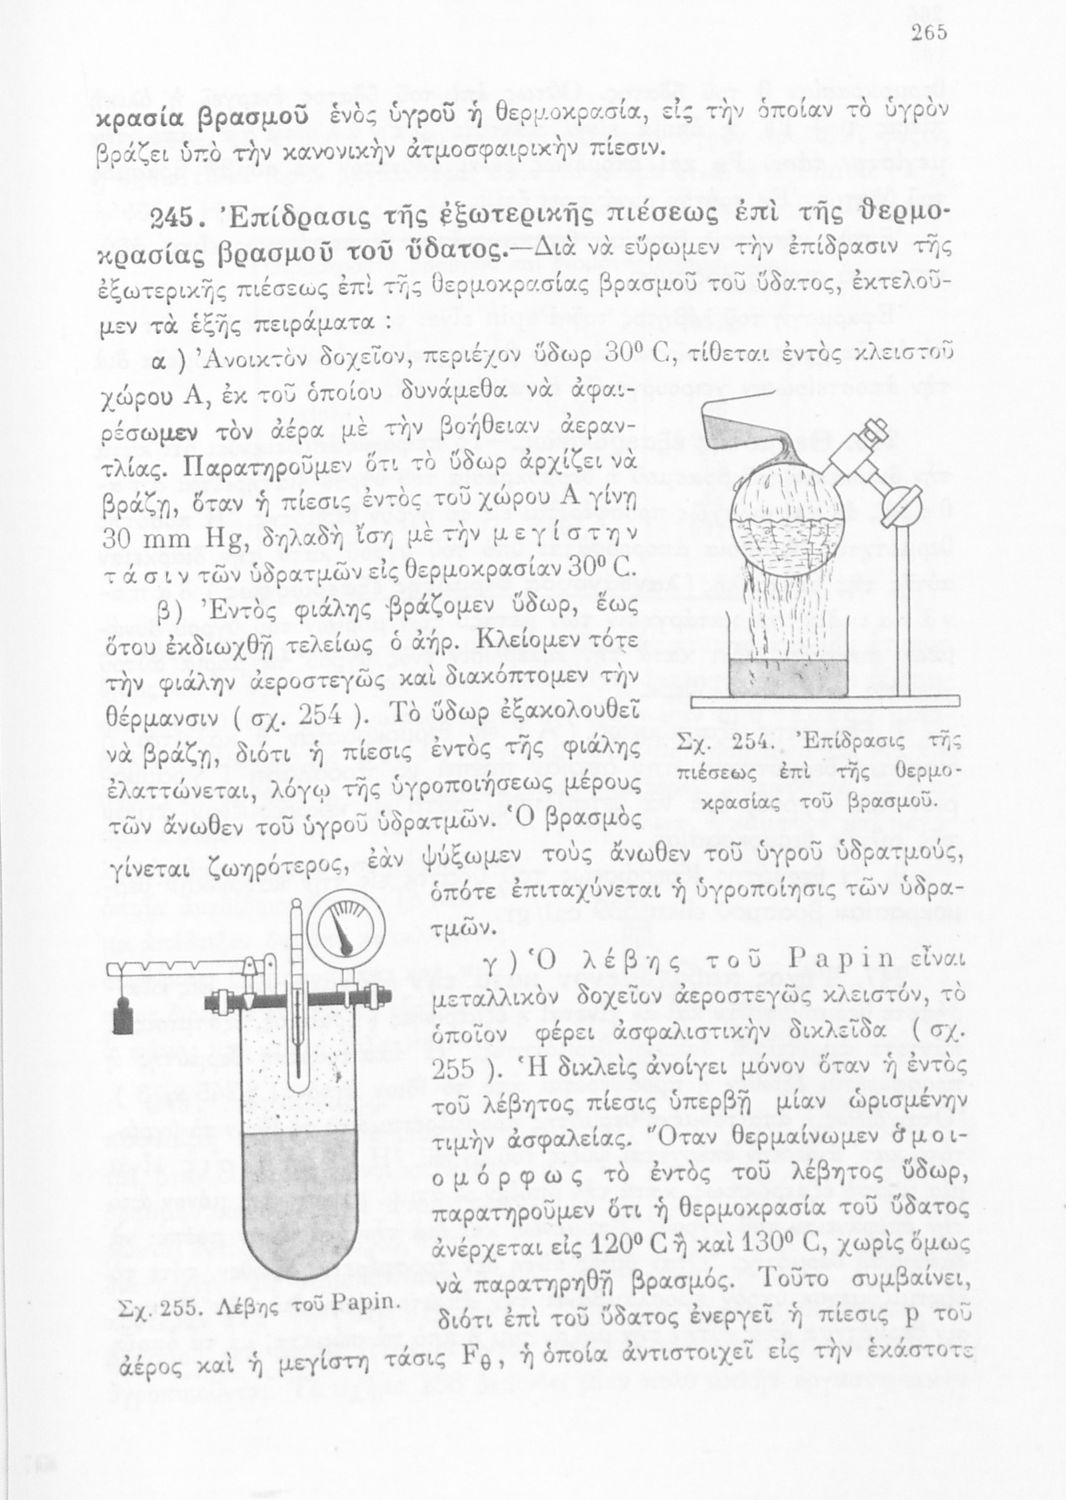 265
κρασία βρασμοῦ ἑνὸς ὑγροῦ ἡ θερμοκρασία, εἰς τὴν ὁποίαν τὸ ὑγρὸν
βράζει ὑπὸ τὴν κανονικὴν ἀτμοσφαιρικὴν πίεσιν.
245. Ἐπίδρασις τῆς ἐξωτερικῆς πιέσεως ἐπὶ τῆς θερμο-
κρασίας βρασμοῦ τοῦ ὕδατος.—Διὰ νὰ εὕρωμεν τὴν ἐπίδρασιν τῆς
ἐξωτερικῆς πιέσεως ἐπὶ τῆς θερμοκρασίας βρασμοῦ τοῦ ὕδατος, ἐκτελοῦ-
μεν τὰ ἑξῆς πειράματα :
α ) Ἀνοικτὸν δοχεῖον, περιέχον ὕδωρ 30⁰ C, τίθεται ἐντὸς κλειστοῦ
χώρου Α, ἐκ τοῦ ὁποίου δυνάμεθα νὰ ἀφαι-
ρέσωμεν τὸν ἀέρα μὲ τὴν βοήθειαν ἀεραν-
τλίας. Παρατηροῦμεν ὅτι τὸ ὕδωρ ἀρχίζει νὰ
βράζῃ, ὅταν ἡ πίεσις ἐντὸς τοῦ χώρου Α γίνῃ
30 mm Hg, δηλαδὴ ἴση μὲ τὴν μ ε γ ί σ τ η ν
τ ά σ ι ν τῶν ὑδρατμῶν εἰς θερμοκρασίαν 30⁰ C.
β) Ἐντὸς φιάλης βράζομεν ὕδωρ, ἕως
ὅτου ἐκδιωχθῇ τελείως ὁ ἀήρ. Κλείομεν τότε
τὴν φιάλην ἀεροστεγῶς καὶ διακόπτομεν τὴν
θέρμανσιν ( σχ. 254 ). Τὸ ὕδωρ ἐξακολουθεῖ
νὰ βράζῃ, διότι ἡ πίεσις ἐντὸς τῆς φιάλης
ἐλαττώνεται, λόγῳ τῆς ὑγροποιήσεως μέρους
τῶν ἄνωθεν τοῦ ὑγροῦ ὑδρατμῶν. Ὁ βρασμὸς
Σχ. 254. Ἐπίδρασις τῆς
πιέσεως ἐπὶ τῆς θερμο-
κρασίας τοῦ βρασμοῦ.
γίνεται ζωηρότερος, ἐὰν ψύξωμεν τοὺς ἄνωθεν τοῦ ὑγροῦ ὑδρατμούς,
ὁπότε ἐπιταχύνεται ἡ ὑγροποίησις τῶν ὑδρα-
τμῶν.
γ ) Ὁ λ έ β η ς τ ο ῦ P a p i n εἶναι
μεταλλικὸν δοχεῖον ἀεροστεγῶς κλειστόν, τὸ
ὁποῖον φέρει ἀσφαλιστικὴν δικλεῖδα ( σχ.
255 ). Ἡ δικλεὶς ἀνοίγει μόνον ὅταν ἡ ἐντὸς
τοῦ λέβητος πίεσις ὑπερβῇ μίαν ὡρισμένην
τιμὴν ἀσφαλείας. Ὅταν θερμαίνωμεν ὁ μ ο ι-
ο μ ό ρ φ ω ς τὸ ἐντὸς τοῦ λέβητος ὕδωρ,
παρατηροῦμεν ὅτι ἡ θερμοκρασία τοῦ ὕδατος
ἀνέρχεται εἰς 120⁰ C ἢ καὶ 130⁰ C, χωρὶς ὅμως
νὰ παρατηρηθῇ βρασμός. Τοῦτο συμβαίνει,
διότι ἐπὶ τοῦ ὕδατος ἐνεργεῖ ἡ πίεσις p τοῦ
Σχ. 255. Λέβης τοῦ Papin.
ἀέρος καὶ ἡ μεγίστη τάσις Fθ, ἡ ὁποία ἀντιστοιχεῖ εἰς τὴν ἑκάστοτε